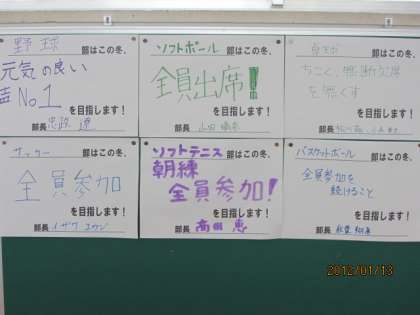 野球 部はこの冬、
元気の良い
声No.1
を目指します!
部長
ソフトボール 部はこの冬、
全員出席!
を目指します!
部長
部はこの冬、
ちこく、無断欠席
を無くす
を目指します!
部長
サッカー 部はこの冬、
全員参加
を目指します!
部長
ソフトテニス 部はこの冬、
朝練
全員参加!
を目指します!
部長 高田 恵
バスケットボール 部はこの冬、
全員参加を
続けること
を目指します!
部長
2012/01/13